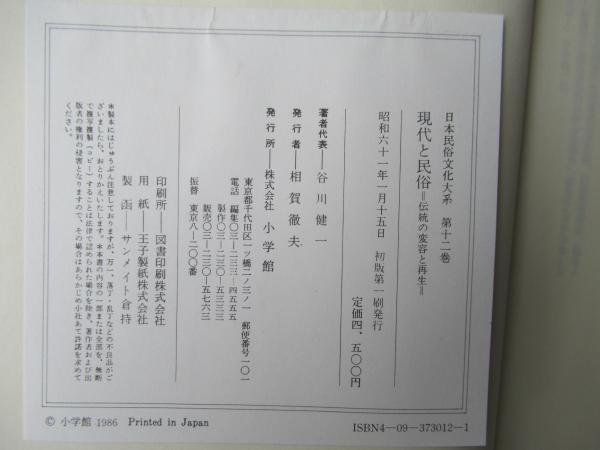 日本民俗文化大系　第十二巻
現代と民俗＝伝統の変容と再生＝
昭和六十一年一月十五日　初版第一刷発行
定価四、五〇〇円
著者代表──谷川健一
発行者──相賀徹夫
発行所──株式会社 小学館
東京都千代田区一ツ橋二ノ三ノ一　郵便番号一〇一
電話　編集〇三―二三三―四五五五
製作〇三―二三〇―五三三三
販売〇三―二三〇―五七六三
振替　東京八―二〇〇番
印刷所──図書印刷株式会社
用紙──王子製紙株式会社
製函──サンメイト倉持
＊製本にはじゅうぶん注意しておりますが、万一、落丁・乱丁などの不良品がご
ざいましたら、おとりかえいたします。＊本書の内容の一部または全部を、無断
で複写複製（コピー）することは法律で認められた場合を除き、著作者および出
版者の権利の侵害となりますので、その場合はあらかじめ小社あて許諾を求めて
ください。
© 小学館 1986 Printed in Japan
ISBN4―09―373012―1